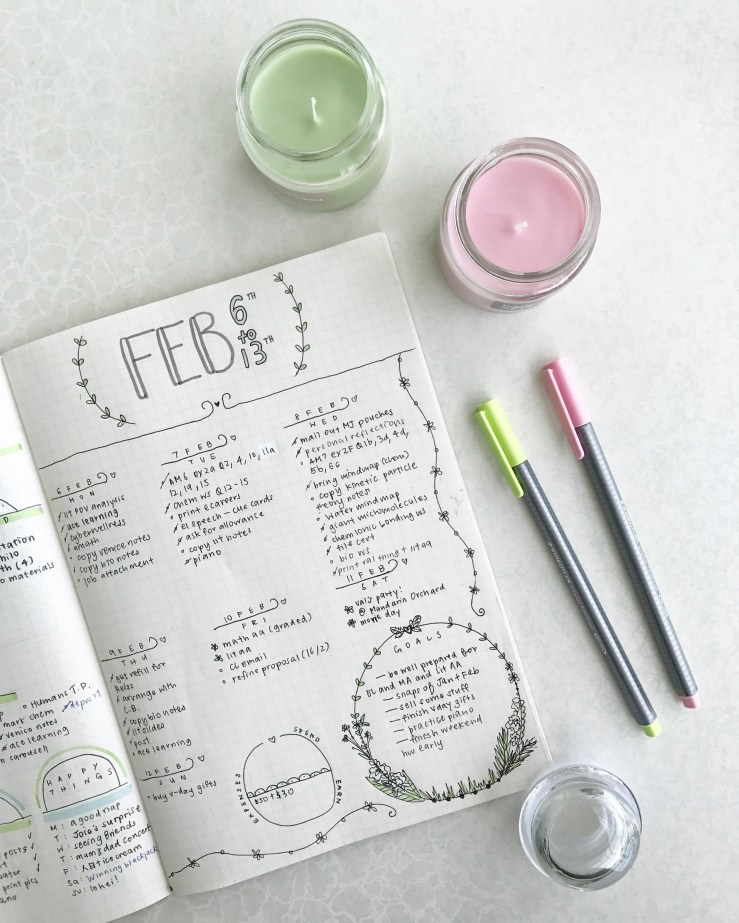 FEB 6TH to 13TH
6 FEB
MON
lit POV analysis
ace learning
cyberwellness
emath
copy venice notes
copy bio notes
job attachment
7 FEB
TUE
AM6 ex2a Q2, 4, 10, 11a
12, 14, 15
chem ws Q12-15
print ecareers
el speech - cue cards
ask for allowance
copy lit notes
piano
8 FEB
WED
mail out MJ pouches
personal reflections
AM7 ex2F Q1b, 3d, 4d,
5b, 6c
bring mindmap (chem)
copy kinetic particle
theory notes
water mindmap
giant micromolecules
chem ionic bonding ws
file cert
bio ws
print val thing + lit aa
9 FEB
THU
get refill for
arrange with
C.B.
copy bio notes
lit slides
post
ace learning
10 FEB
FRI
math aa (graded)
lit aa
CL email
refine proposal (16/2)
11 FEB
SAT
val's party!
@ Mandarin Orchard
movie day
12 FEB
SUN
buy v-day gifts
SPEND
EARN
EXPENSES
$50 + $30
GOALS
— be well prepared for
EL and MA and lit AA
— snaps of Jan + Feb
— sell some stuff
— finish vday gifts
— practice piano
— finish weekend
hw early
D
th (4)
materials
Humans T.P.
mark chem
deposit
venice notes
ace learning
carousell
HAPPY
THINGS
M: a good nap
T: Joie's surprise
W: seeing friends
T: mum & dad concert
F: 人日 + ice cream
Sa: Winning blackjack
Su: lo hei!
posts
water
print pics